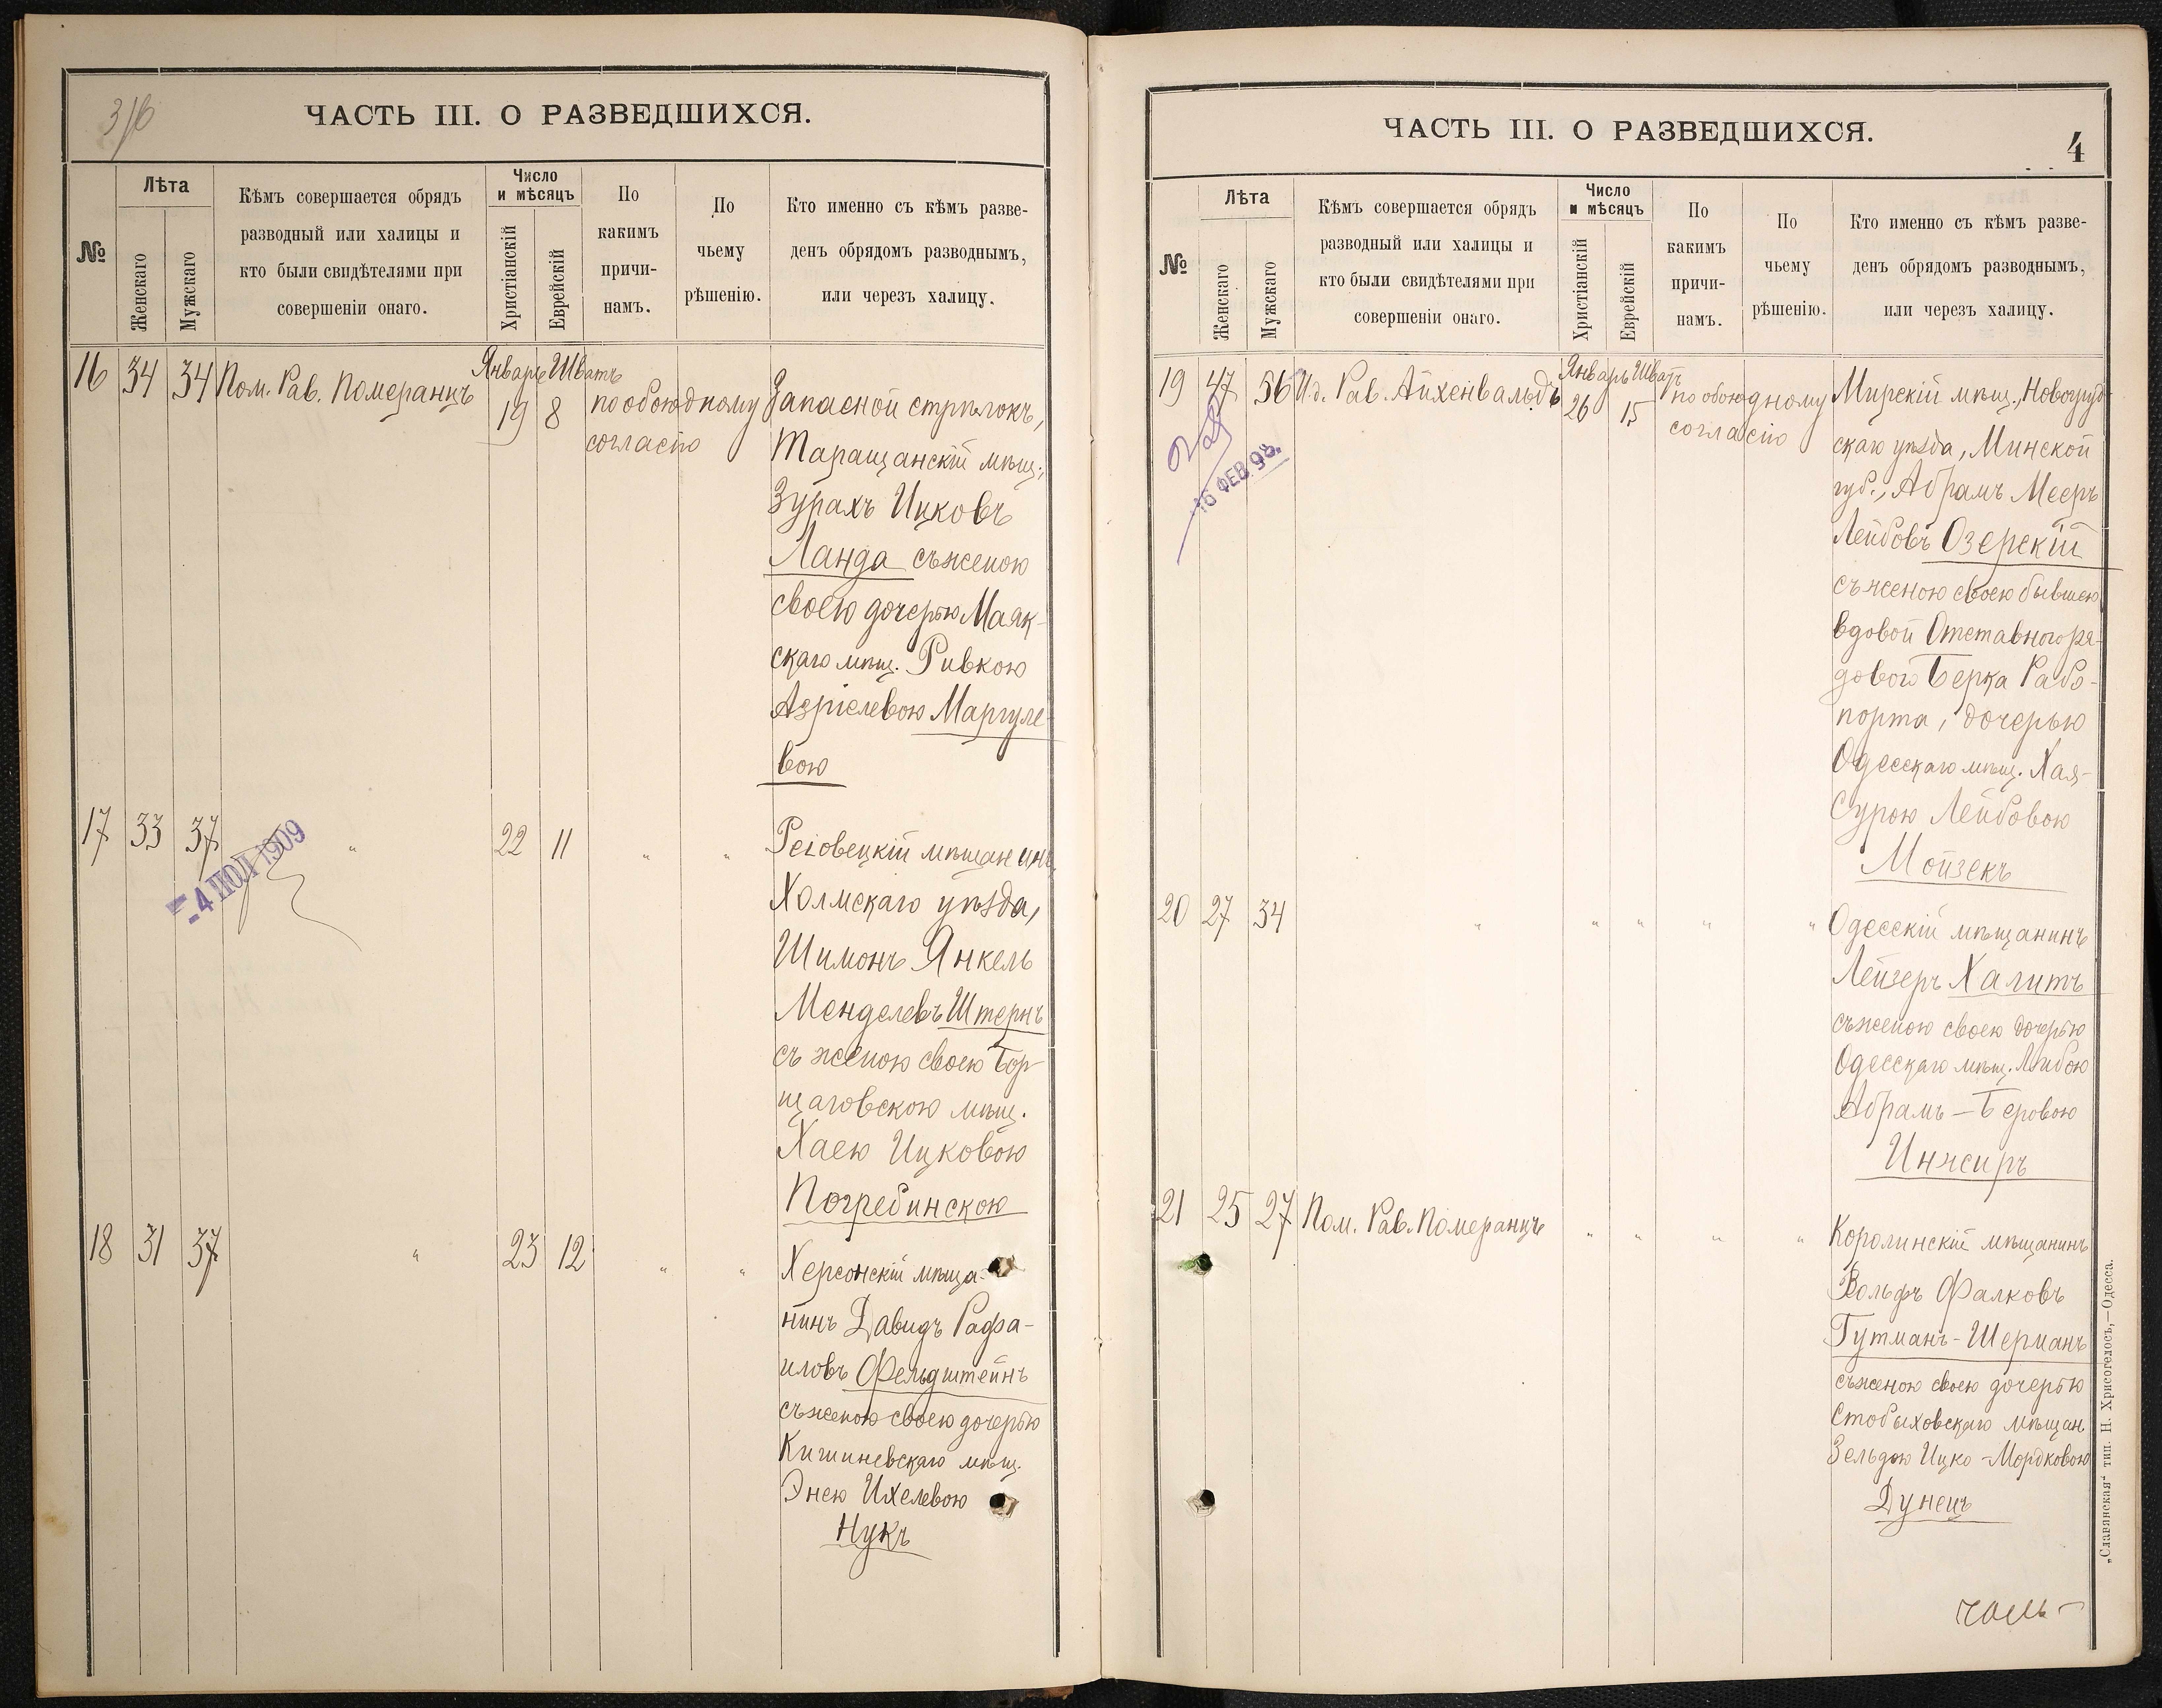 ЧАСТЬ III. О РАЗВЕДШИХСЯ.
№
Лѣта
Женскаго
Мужскаго
Кѣмъ совершается обрядъ
разводный или халицы и
кто были свидѣтелями при
совершеніи онаго.
Число
и мѣсяцъ
Христіанскій
Еврейскій
По
какимъ
причи-
намъ.
По
чьему
рѣшенію.
Кто именно съ кѣмъ разве-
денъ обрядомъ разводнымъ,
или черезъ халицу.
16 34 34 Пом. Рав. Померанцъ Январь 19 Шватъ 8 по обоюдному
согласію
Запасной стрѣлокъ,
Таращанскій мѣщ.,
Зурахъ Ицковъ
Ланда съ женою
своею дочерью Маяк-
скаго мѣщ. Ривкою
Азріелевою Маргуле-
вою
17 33 37 " 22 11 " "
-4 ІЮЛ 1909
Реіовецкій мѣщанинъ
Холмскаго уѣзда,
Шимонъ Янкель
Менделевъ Штернъ
съ женою своею Бор-
щаговскою мѣщ.
Хаею Ицковою
Погребинскою
18 31 37 " 23 12 " "
Херсонскій мѣща-
нинъ Давидъ Рафа-
иловъ Фельдштейнъ
съ женою своею дочерью
Кишиневскаго мѣщ.
Энею Ихелевою
Нукъ
ЧАСТЬ III. О РАЗВЕДШИХСЯ.
4
№
Лѣта
Женскаго
Мужскаго
Кѣмъ совершается обрядъ
разводный или халицы и
кто были свидѣтелями при
совершеніи онаго.
Число
и мѣсяцъ
Христіанскій
Еврейскій
По
какимъ
причи-
намъ.
По
чьему
рѣшенію.
Кто именно съ кѣмъ разве-
денъ обрядомъ разводнымъ,
или черезъ халицу.
19 47 56 И.д. Рав. Айхенвальдъ Январь 26 Шватъ 15 по обоюдному
согласію
16 ФЕВ. 98.
Мирскій мѣщ., Новогруд-
скаго уѣзда, Минской
губ., Абрамъ Мееръ
Лейбовъ Озерскій
съ женою своею бывшею
вдовой Отставного ря-
дового Берка Рабо-
порта, дочерью
Одесскаго мѣщ. Хая-
Сурою Лейбовою
Мойзекъ
20 27 34 " " " " "
Одесскій мѣщанинъ
Лейзеръ Халитъ
съ женою своею дочерью
Одесскаго мѣщ. Либою
Абрамъ-Беровою
Инжиръ
21 25 27 Пом. Рав. Померанцъ " " " "
Королинскій мѣщанинъ
Вольфъ Фалковъ
Гутманъ-Шерманъ
съ женою своею дочерью
Стобыховскаго мѣщан.
Зельдою Ицко-Мордковою
Дунецъ
„Славянская“ тип. Н. Хрисогелосъ,—Одесса.